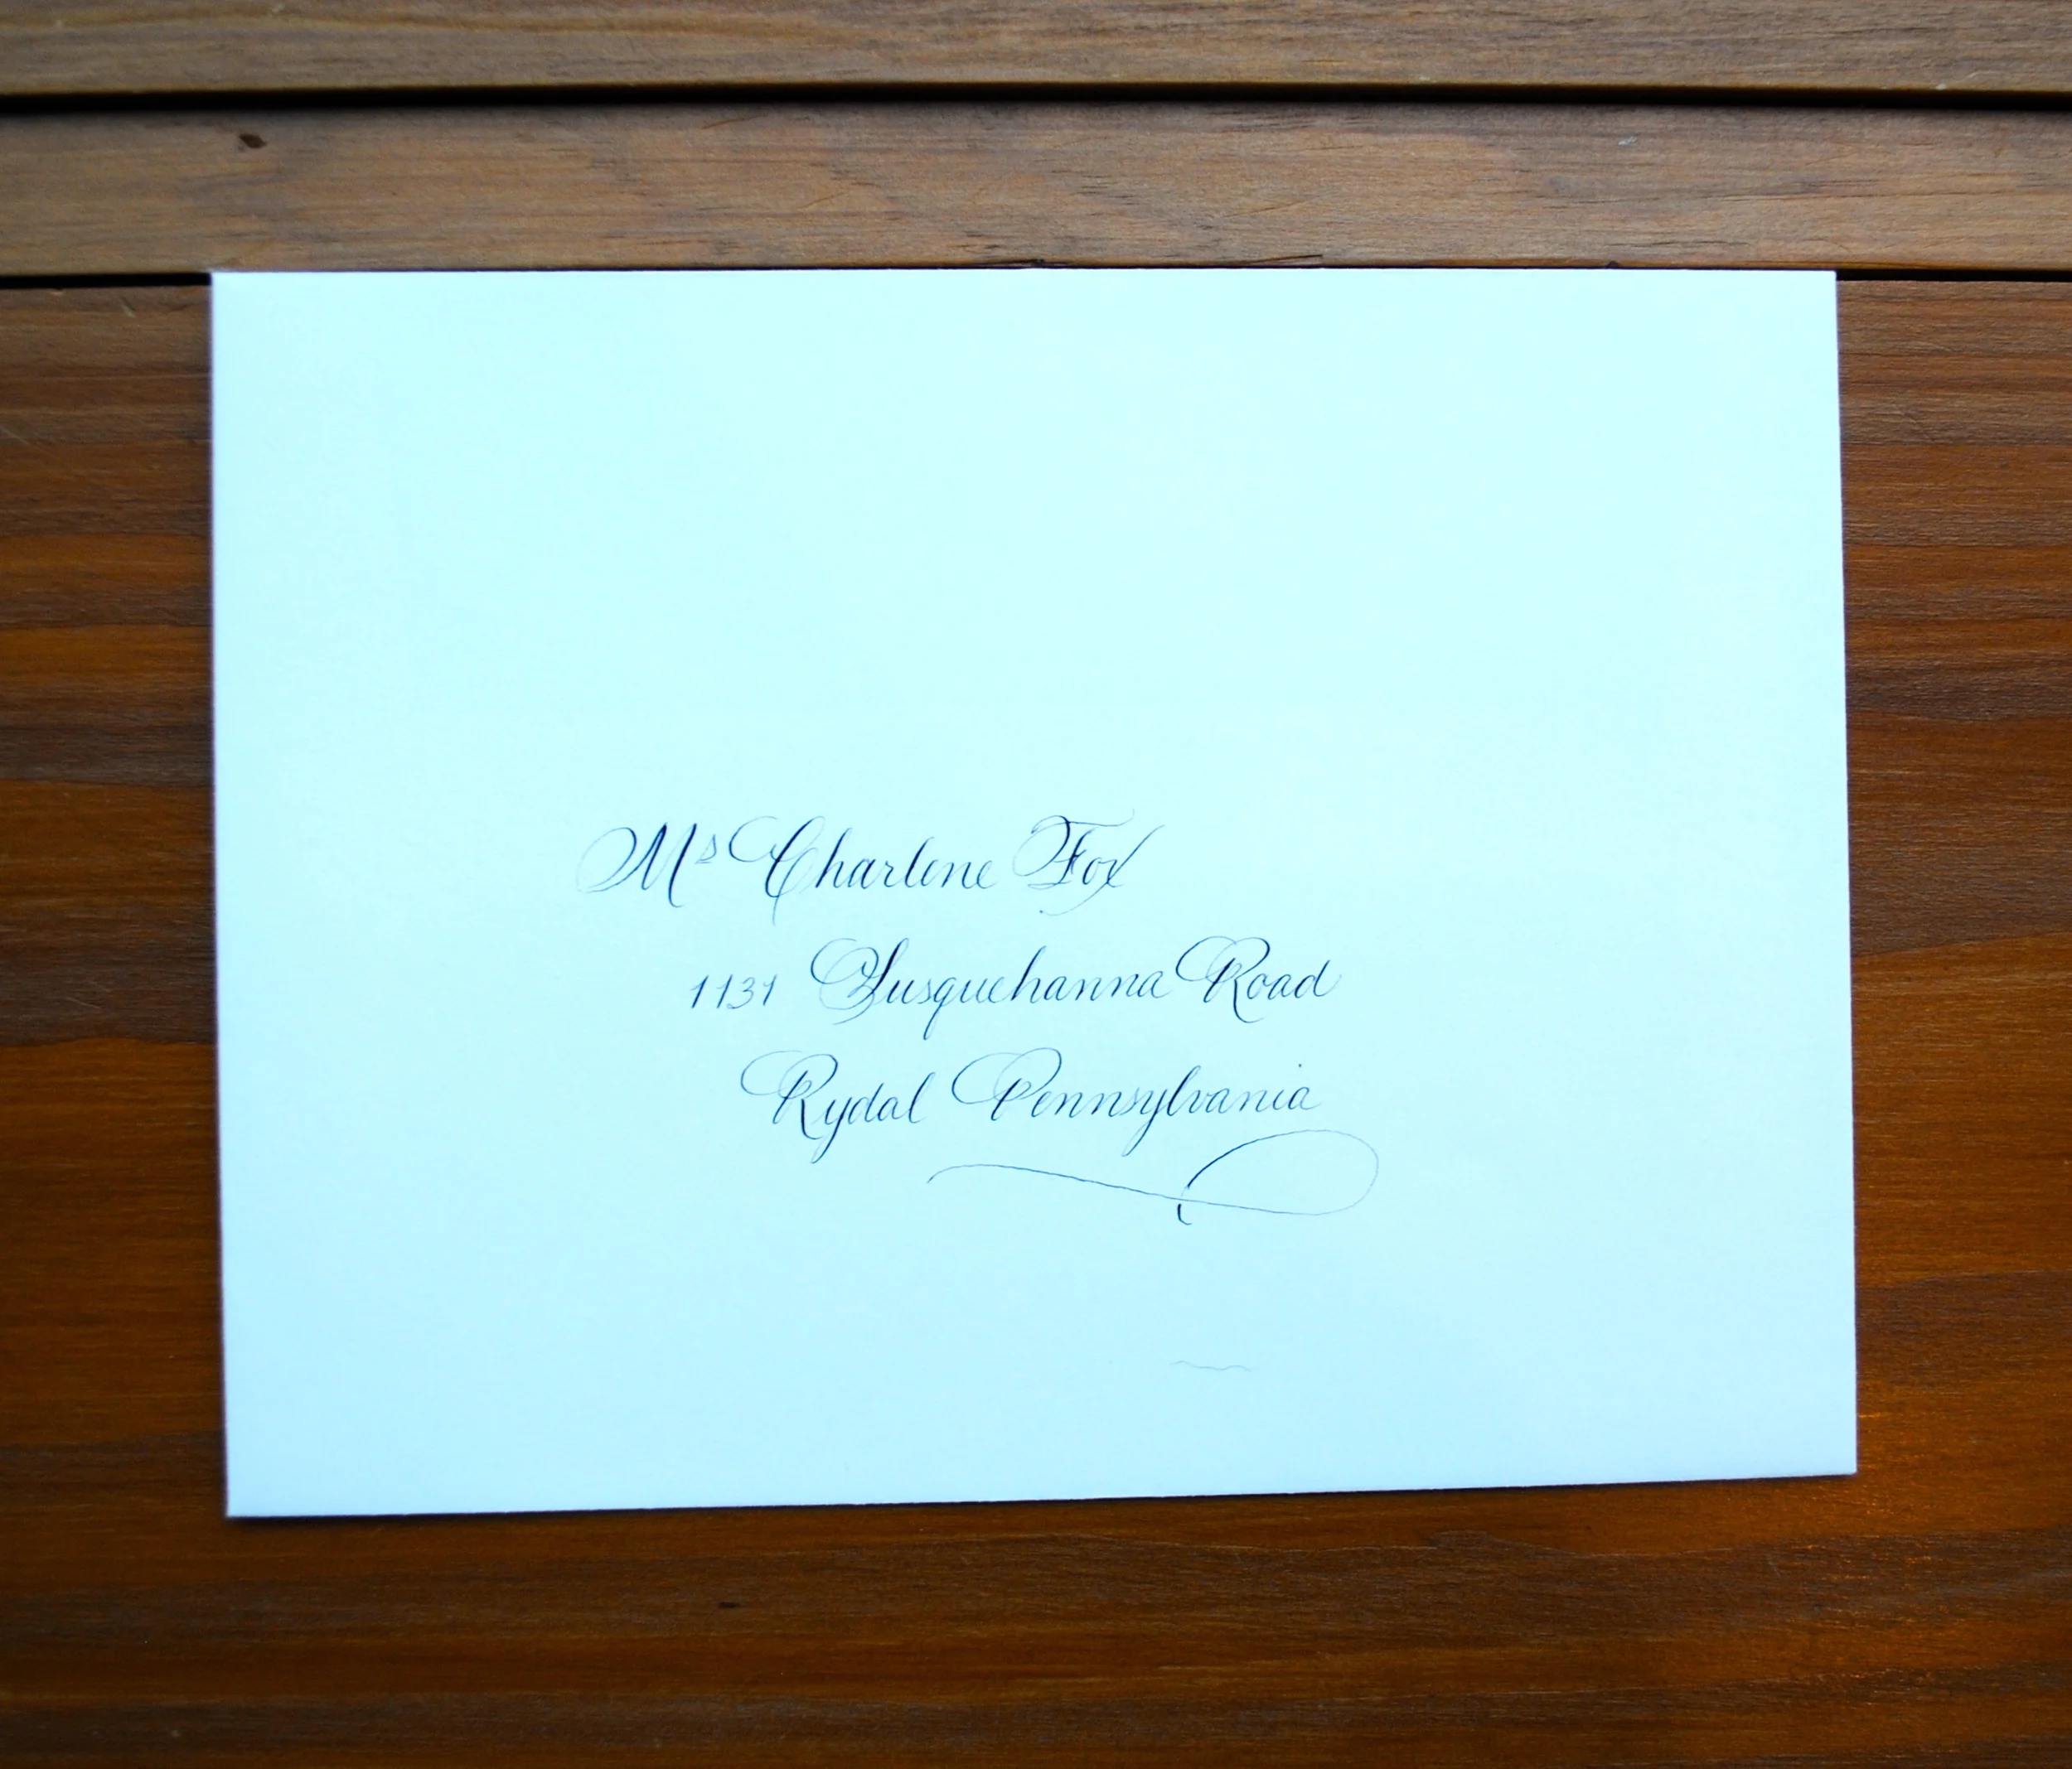 Ms Charlene Fox
1131 Susquehanna Road
Rydal Pennsylvania